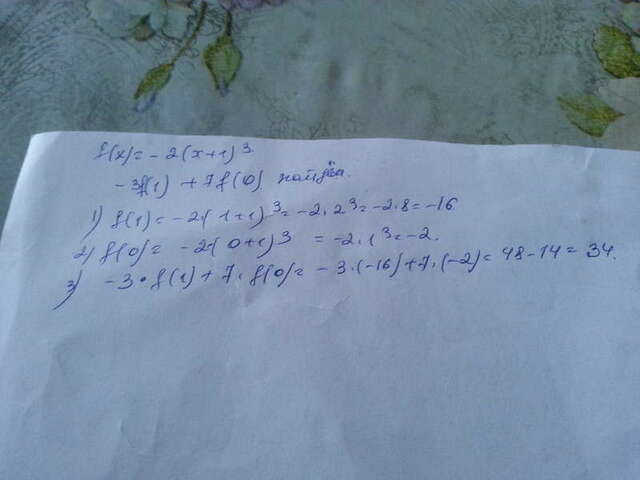 f(x)= -2(x+1)³
-3f(1) +7f(0) найдём.
1) f(1)= -2·(1+1)³= -2·2³= -2·8= -16
2) f(0)= -2·(0+1)³ = -2·1³= -2.
3) -3·f(1)+7·f(0)= -3·(-16)+7·(-2)= 48-14= 34.